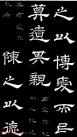 之以博愛而民
莫遺其親
陳之以德